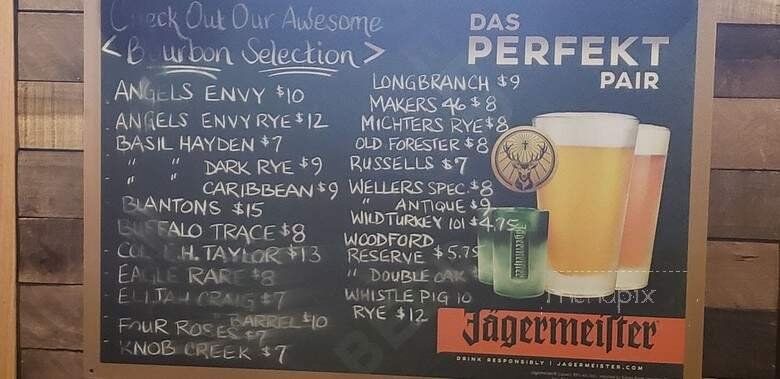 Check Out Our Awesome
< Bourbon Selection >
ANGELS ENVY $10
ANGELS ENVY RYE $12
BASIL HAYDEN $7
" " DARK RYE $9
" " CARIBBEAN $9
BLANTONS $15
BUFFALO TRACE $8
COL E.H. TAYLOR $13
EAGLE RARE $8
ELIJAH CRAIG $7
BARREL $10
FOUR ROSES $7
KNOB CREEK $7
LONGBRANCH $9
MAKERS 46 $8
MICHTERS RYE $8
OLD FORESTER $8
RUSSELLS $7
WELLERS SPEC. $8
" ANTIQUE $9
WILD TURKEY 101 $4.75
WOODFORD
RESERVE $5.75
" DOUBLE OAK
WHISTLE PIG 10
RYE $12
DAS
PERFEKT
PAIR
Jägermeister
Jägermeister
DRINK RESPONSIBLY | JAGERMEISTER.COM
menupix